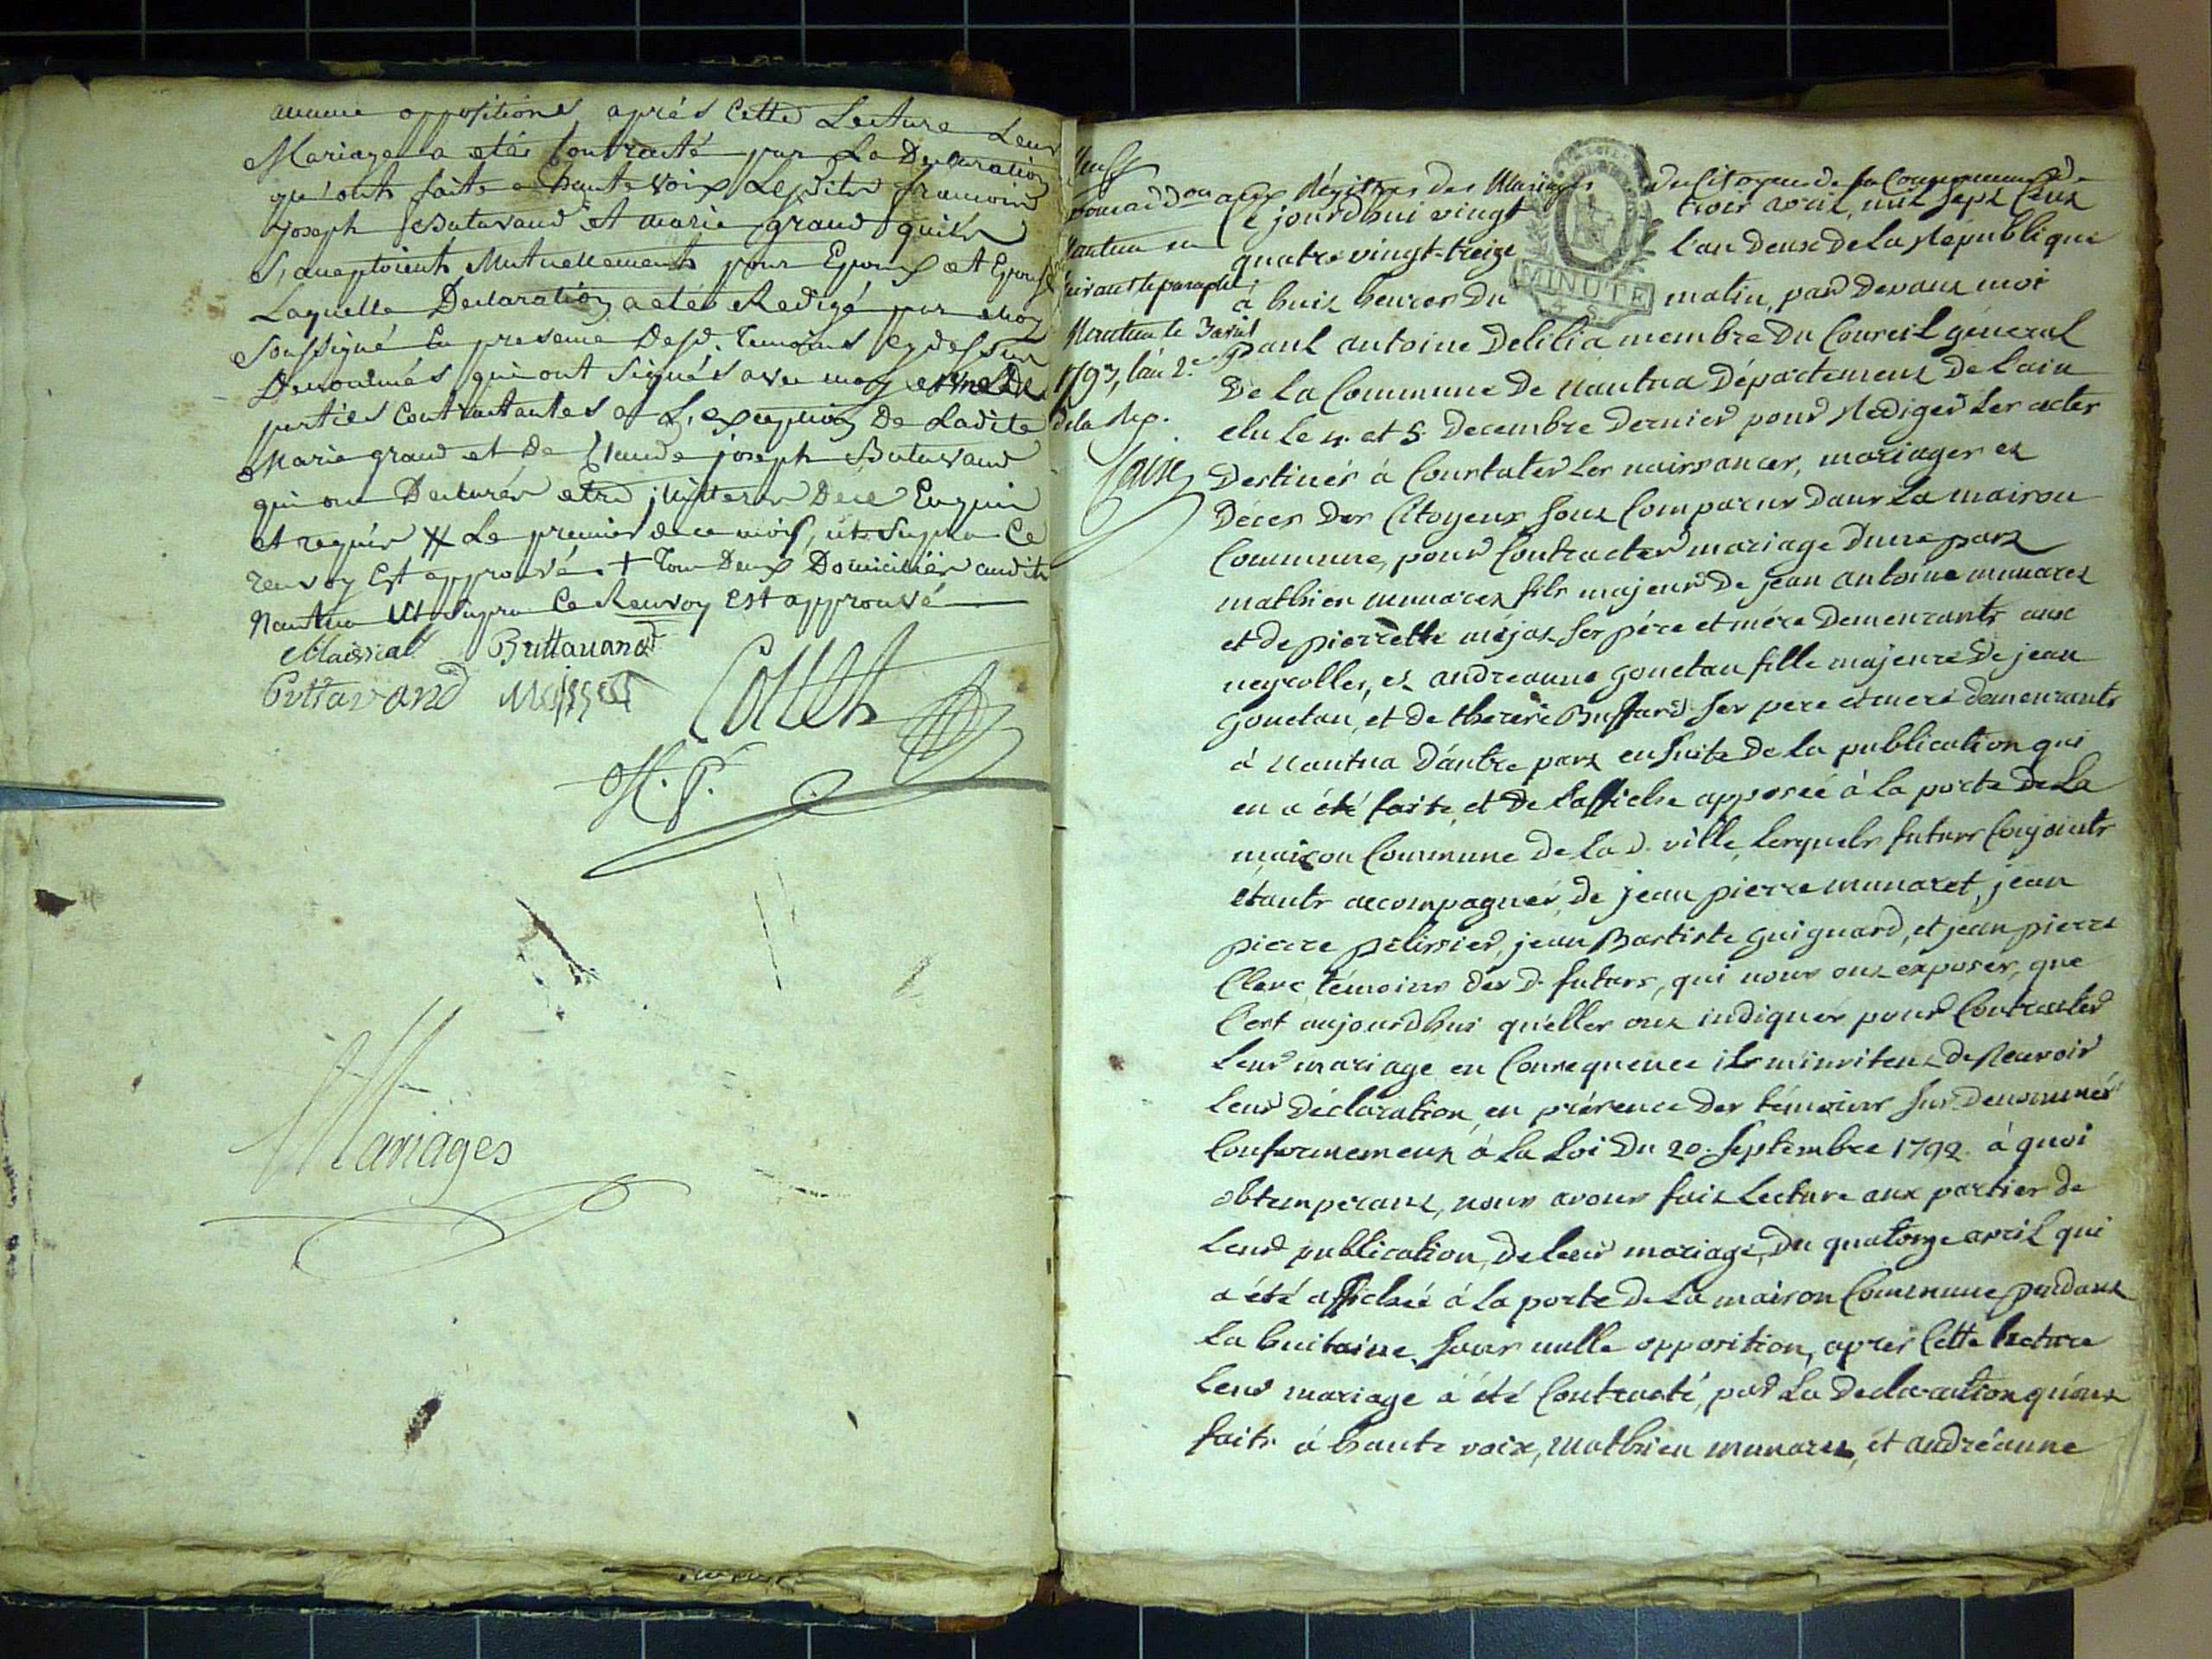 aucune oppositions, aprés Cette Lecture Leur
Mariage a etés Contracté par La Declaration
qu'ont faite a haute voix Lesdits francois
joseph Butavand et Marie grand quils
S'acceptoient Mutuellement pour Epoux et Epouse
Laquelle Declaration a etés Redigé par moy
Soussigné En presence Desd. Temoins cy dessus
Denommés qui ont Signés avec moy
parties Contractantes a L'exception De Ladite
Marie grand et De Claude joseph Butavand
qui ont Declarés etre illitterés De ce Enquis
et requis # Le premier de ce mois, ut Supra Ce
renvoy Est approuvé. + Tous Deux Domiciliés audit
Nantua Ut Supra Ce Renvoy Est approuvé
Maissiat Buttavand
Buttavand Maissiat Collet
Mariages
du Citoyens de la Commune de
aux Régitres des Mariages
Nantua en
suivant le paraphe
Nantua le 3 avril
1793, l'an 2e
de la Rep.
Ce jourdhui vingt trois avril, mil sept Cent
quatre vingt-treize l'an deux De La Republique
MINUTE
4. S.
à huit heures Du matin, par Devant moi
paul antoine Delilia membre Du Conseil général
De La Commune De nantua Département De Lain
elu Le 4. et 5. Decembre Dernier pour Rediger Les actes
Destinés à Constater Les naissances, mariages et
Déces Des Citoyens sont Comparus Dans La maison
Commune, pour Contracter mariage Dune part
mathieu munaret fils majeur De jean antoine munaret
et de pierrette mejat ses pére et mére Demeurants aux
neyrolles, et andreanne gouetan fille majeure De jean
gouetan, et De therese Buffard ses pere et mere demeurants
à nantua Dautre part ensuite De la publication qui
en a été faite, et De Laffiche apposée à La porte De La
maison Commune De La d. ville, Lesquels futurs Conjoints
étants accompagnés, De jean pierre munaret, jean
pierre pelissier, jean Bastiste guignard, et jean pierre
Clerc témoins des d. futurs, qui nous ont exposés, que
Cest aujourdhui quelles ont indiqués pour Contracter
Leur mariage en Consequence ils minvitent De Recevoir
Leur Déclaration, en présence Des témoins sus Denommés
Conformement à La Loi Du 20. Septembre 1792. à quoi
obtemperant, nous avons fait Lecture aux parties de
Leur publication, De leur mariage, Du quatorze avril qui
a été affichée à La porte De La maison Commune pendant
La huitaine, sans nulle opposition, aprés Cette Lecture
Leur mariage à été Contracté, par La Declaration quont
faits à haute voix, mathieu munaret, et andréanne